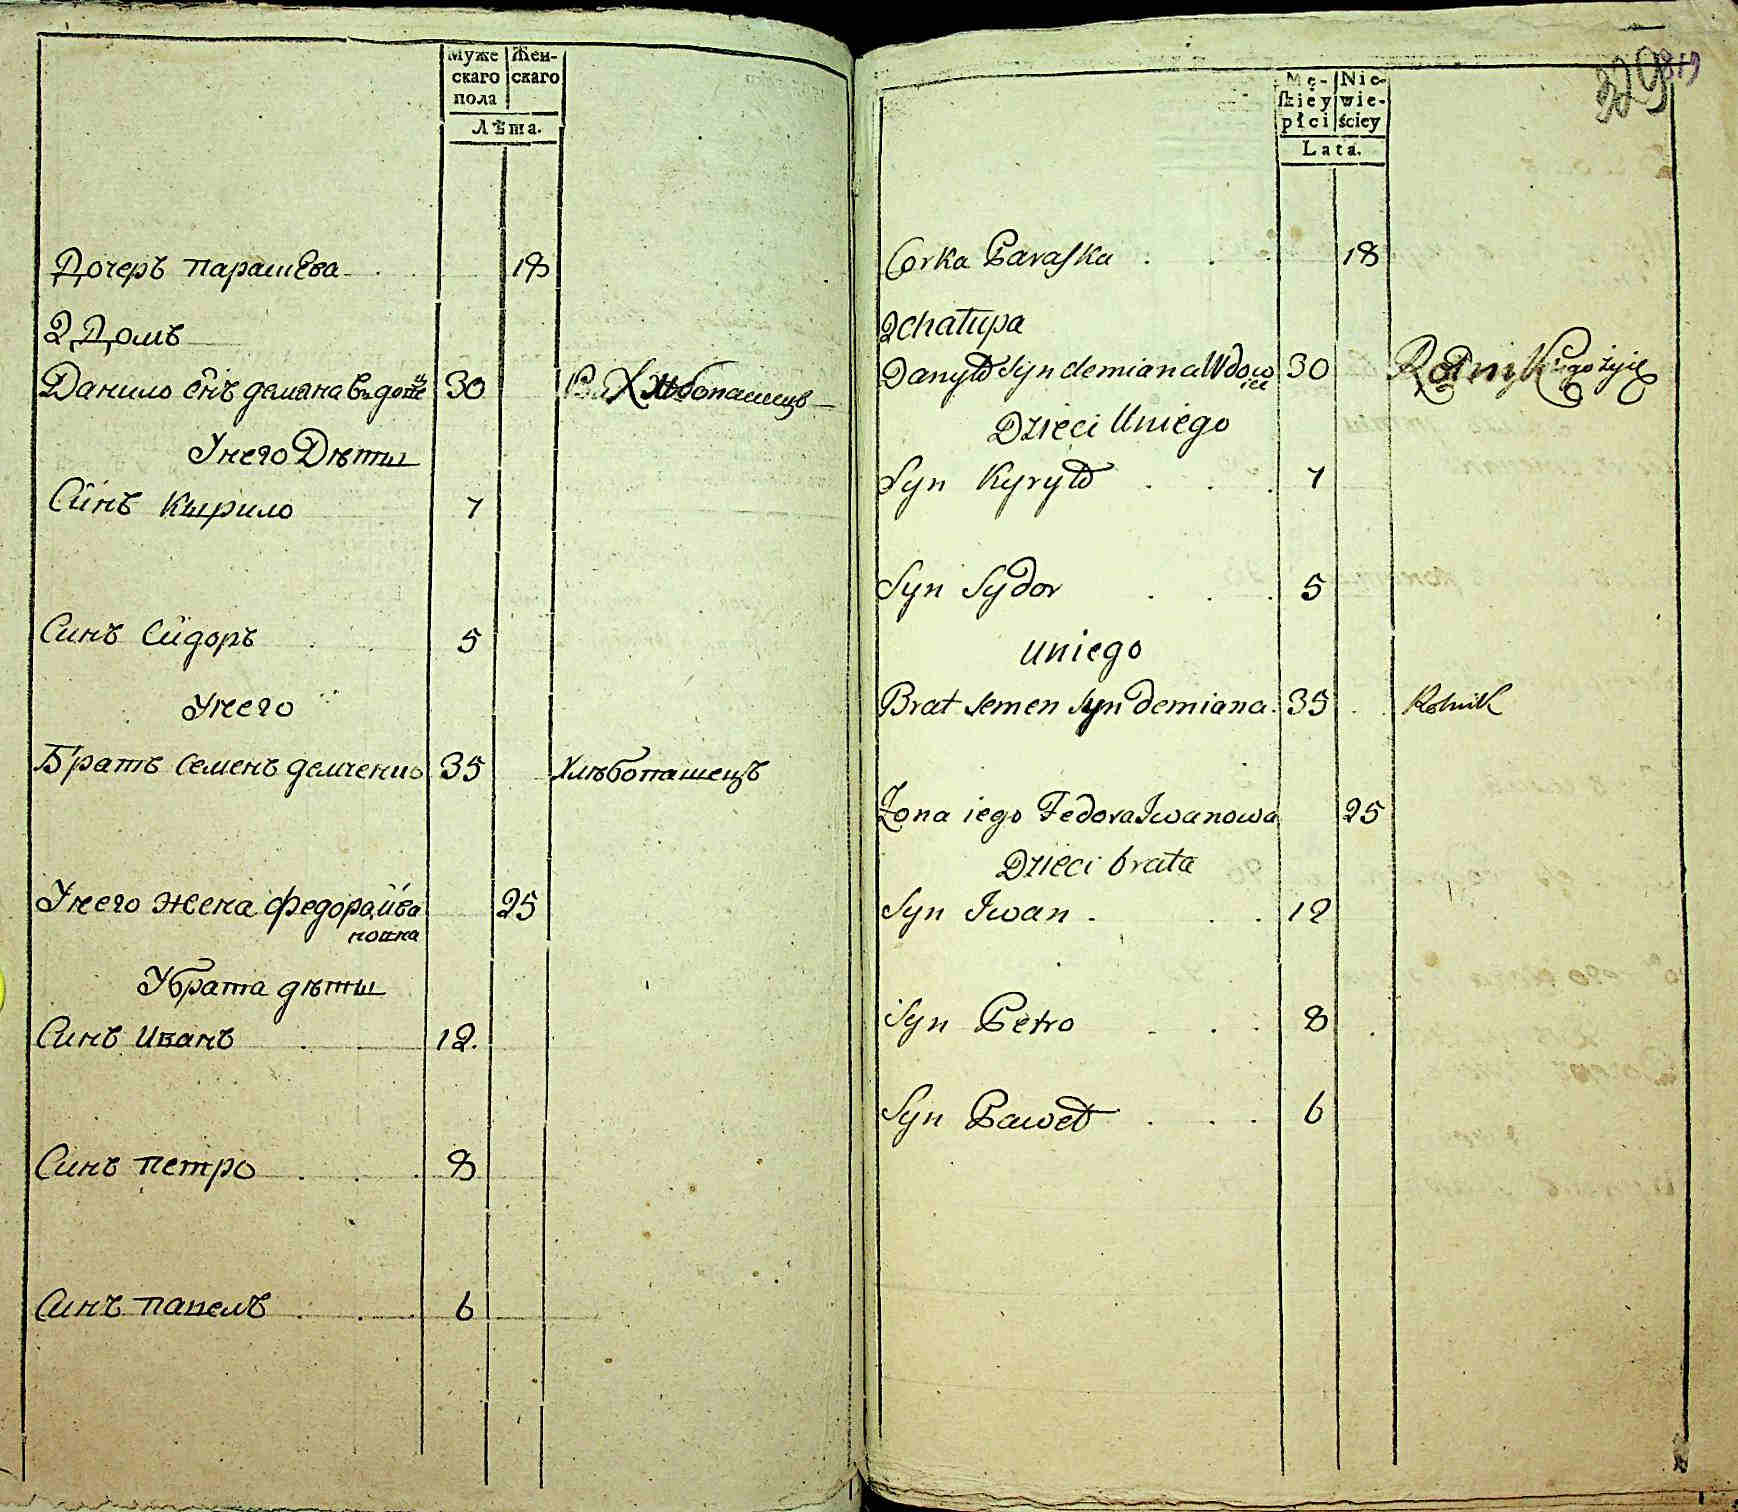 Муже Жен-
скаго скаго
пола
Лѣта.
Дочеръ парашѣва 18
2 Домъ
Данило снъ демяна 30 Хлѣбопашецъ
Унего Дѣты
Синъ Кырило 7
Синъ Сидоръ 5
Унего
Братъ Семенъ 35 Хлѣбопашецъ
Унего жена федора ива 25
новна
Убрата дѣты
Синъ Иванъ 12.
Синъ петро 8
Синъ павелъ 6
329
Mę- Nie-
ſkiey wie-
płci ściey
Lata.
Corka Paraſka 18
2 chałupa
Danyło Syn demiana Wdow 30 Rolnik
iec
Dzieci Uniego
Syn Kyryło 7
Syn Sydor 5
uniego
Brat Semen Syn demiana 35 Rolnik
Żona iego Fedora Iwanowa 25
Dzieci brata
Syn Iwan 12
Syn Petro 8
Syn Paweł 6